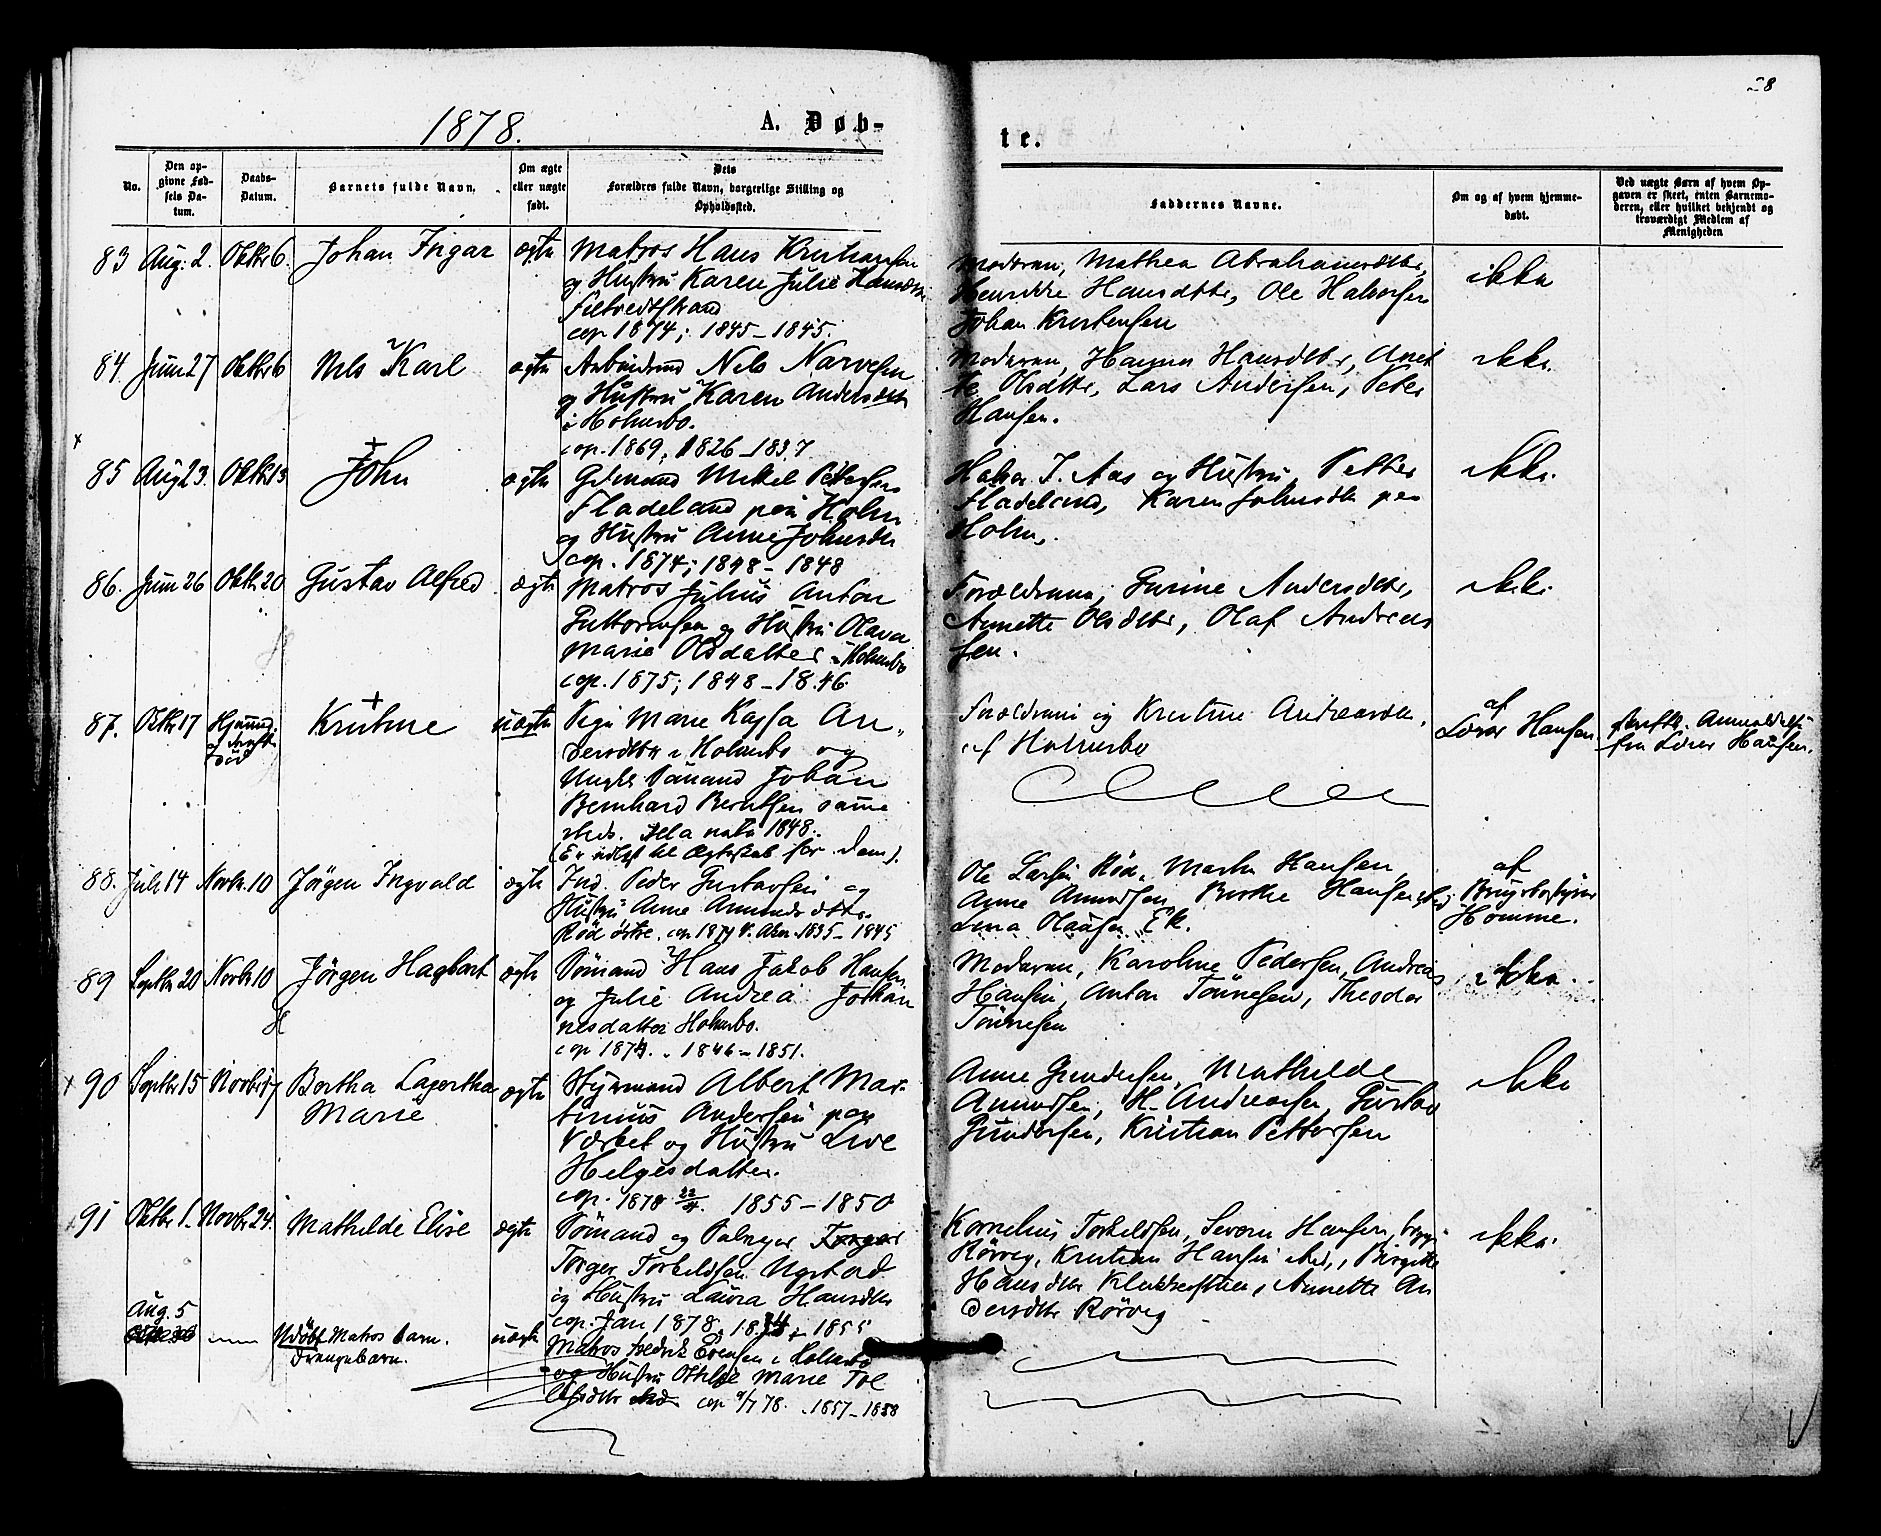 1878.
A. Døb-
te.
28
No.
Den op-
givne Fød-
sels Da-
tum.
Daabs-
Datum.
Barnets fulde Navn.
Om ægte
eller uægte
født.
Dets
Forældres fulde Navn, borgerlige Stilling og
Opholdssted.
Faddernes Navne.
Om og af hvem hjemme-
døbt.
Ved uægte Børn af hvem Op-
gaven er skeet, enten Barnemo-
deren, eller hvilket bekjendt og
troværdigt Medlem af
Menigheden
83 Aug. 2. Oktbr 6. Johan Ingar ægte Matros Hans Kristiansen
og Hustru Karen Julie Hansdtr
cop 1874; 1845-1845.
Moderen, Mathea Abrahamsdtr,
Henrikke Hansdtr, Ole Halvorsen
Johan Kristensen
ikke
84. Juni 27 Oktbr 6 Nils Karl ægte Arbeidsmd Nils Narvesen
og Hustru Karen Andersdtr
i Holmsbo.
cop. 1869, 1826-1837
Moderen, Hanna Hansdtr, Anet
te Olsdtr, Lars Andersen, Peter
Hansen.
ikke.
85 Aug 23. Oktbr 13 John ægte Gdmand Mikkel Pettersen
Fladeland paa Holm
og Hustru Anne Johnsdtr
cop. 1874; 1848-1848
Halvor J. Aas og Hustru, Petter
Fladeland, Karen Johnsdtr paa
Holm.
ikke.
86. Juni 26 Oktbr 20 Gustav Alfred ægte Matros Julius Anton
Guttormsen og Hustru Olava
Marie Olsdatter i Holmsbo
cop. 1875; 1848-1846
Forældrene, Gurine Andersdtr,
Annette Olsdtr, Olaf Andreas
sen.
ikke.
87. Oktbr 17 Hjemmed.
død
Kristine uægte Pige Marie Kajsa An-
dersdtr i Holmsbo og
Ungk. Sømand Johan
Bernhard Berntsen samme
steds. 1848.
(Er udlyst til Ægteskab før Dom).
Forældrene og Kristine Andreasdtr.
af Holmsbo
af
Lærer Hansen.
skriftl. Anmeldelse
fra Lærer Hansen.
88. Juli 14 Novbr. 10 Jörgen Ingvald ægte Ind. Peder Gustavsen og
Hustru Anne Amundsdtr.
Röd östre. cop 1874 1835-1845
Ole Larsen Röd, Martin Hansen,
Anne Amundsen, Berthe Hansen
Lina Olausen Ek.
af
Brugsbestyrer
Homme.
89 Septbr 20 Novbr 10 Jörgen Hagbart ægte Sömand Hans Jakob Hansen
og Julie Andrea Johan
nesdatter Holmsbo.
cop 1874. 1846-1851.
Moderen, Karoline Pedersen, Andreas
Hansen, Anton Tönnesen, Theodor
Tönnesen
ikke.
90 Septbr 15 Novbr 17 Bertha Lagertha
Marie
ægte Styrmand Albert Mar-
tinius Andersen paa
Værket og Hustru Live
Helgesdatter.
cop. 1878 1855-1850
Anne Gundersen, Mathilde
Amundsen, H. Andreasen, Gustav
Gundersen, Kristian Pettersen
ikke
91 Oktbr 1. Novbr 24. Mathilde Elise ægte Sømand og Paalæger Torger
Torger Torkeldsen
og Hustru Laura Hansdtr
cop. Jan 1878, 1854 + 1855
Kornelius Torkeldsen, Severin Hansen, begge
Rörvig, Kristian Hansen, Birgitte
Hansdtr Klokkerstuen, Annette An
dersdtr Rörvig
ikke.
Aug. 5
Udöbt Matros barn.
Drengebarn.
uægte Matros Fredrik Evensen i Holmsbo
og Hustru Othilie Marie
cop 9/7 78. 1857-1858